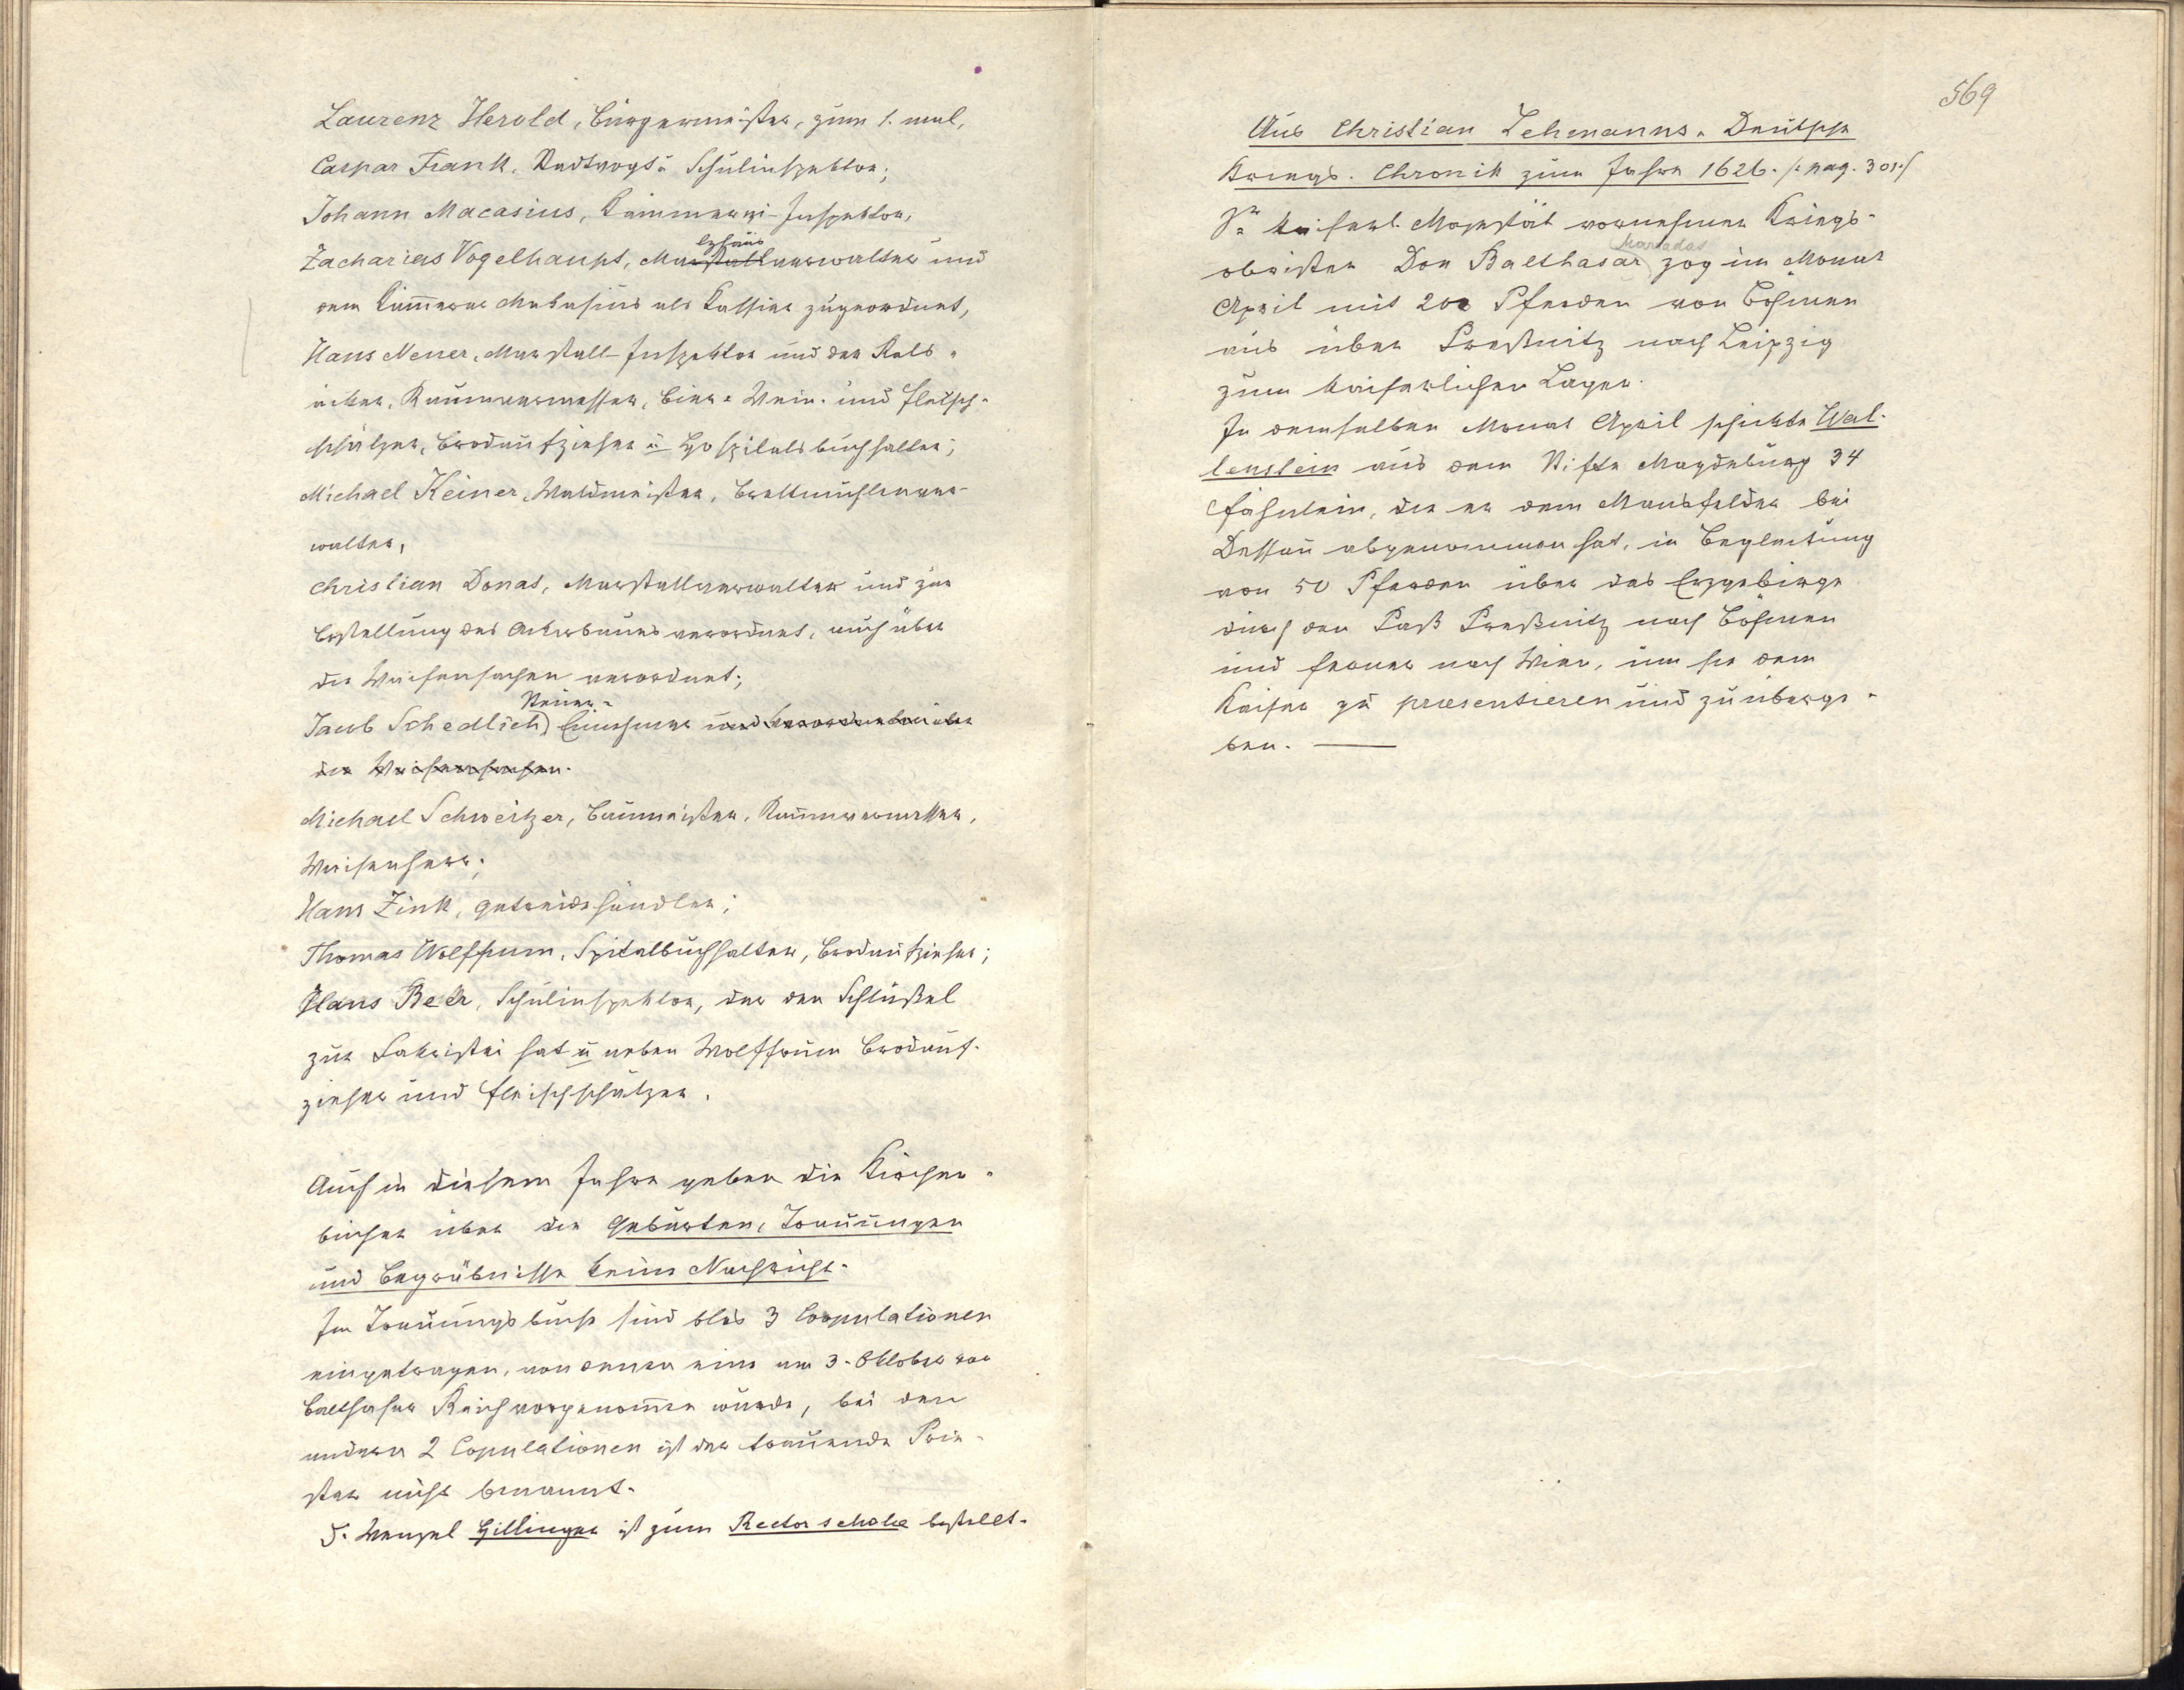 Laurenz Herold, Bürgermeister, zum 1. mal,
Caspar Frank, Stadtvogt u Schulinspektor;
Johann Macasius, Kämmerei-Inspektor,
lzhaus
Zacharias Vogelhaupt, Marstallverwalter und
dem Kam̄erer Makasius als Kassier zugeordnet,
Hans Nener, Marstall-Inspektor und der Rats-
äcker, Raummermesser, Bier- Wein- und Fleisch-
schätzer, Brodaufzieher u Hospitalsbuchhalter;
Michael Keiner, Waldmeister, Brettmühlenver-
walter,
Christian Donat, Marstallverwalter und zur
Bestellung des Ackerbaues verordnet, auch über
die Waisensachen verordnet;
Steuer-
Jacob Schedlich) Einnehmer und Verordneter über
die Waisensachen.
Michael Schweitzer, Baumeister, Raummermesser,
Waisenherr;
Hans Zink, Getreidehändler;
Thomas Wolffrum, Spitalbuchhalter, Brodaufzieher;
Hans Beer, Schulinspektor, der den Schlüßel
zur Sakristei hat u neben Wolffrum Brodauf-
zieher und Fleischschätzer.
Auch in diesem Jahre geben die Kirchen-
bücher über die Geburten, Trauungen
und Begräbnisse keine Nachricht.
Im Trauungsbuche sind blos 3 Copulationen
eingetragen, von denen eine am 3. Oktober von
Balthasar Reich vorgenom̄en wurde, bei den
andern 2 Copulationen ist der trauende Prie-
ster nicht benannt.
J. Wenzel Hillinger ist zum Rector scholae bestellt.
569
Aus Christian Lehmanns- Deutsche
Kriegs- Chronik zum Jahre 1626. /: pag. 30:/
Sr kaiserl. Majestät vornehmer Kriegs-
Maradas
obrister Don Balthasar zog im Monat
April mit 200 Pferden von Böhmen
aus über Preßnitz nach Leipzig
zum kaiserlichen Lager.
In demselben Monat April schickte Wal-
lenstein aus dem Stifte Magdeburg 34
Fähnlein, die er dem Mansfelder bei
Dessau abgenommen hat, in Begleitung
von 50 Pferden über das Erzgebirge
durch den Paß Preßnitz nach Böhmen
und ferner nach Wien, um sie dem
Kaiser zu præsentieren und zu überge-
ben.